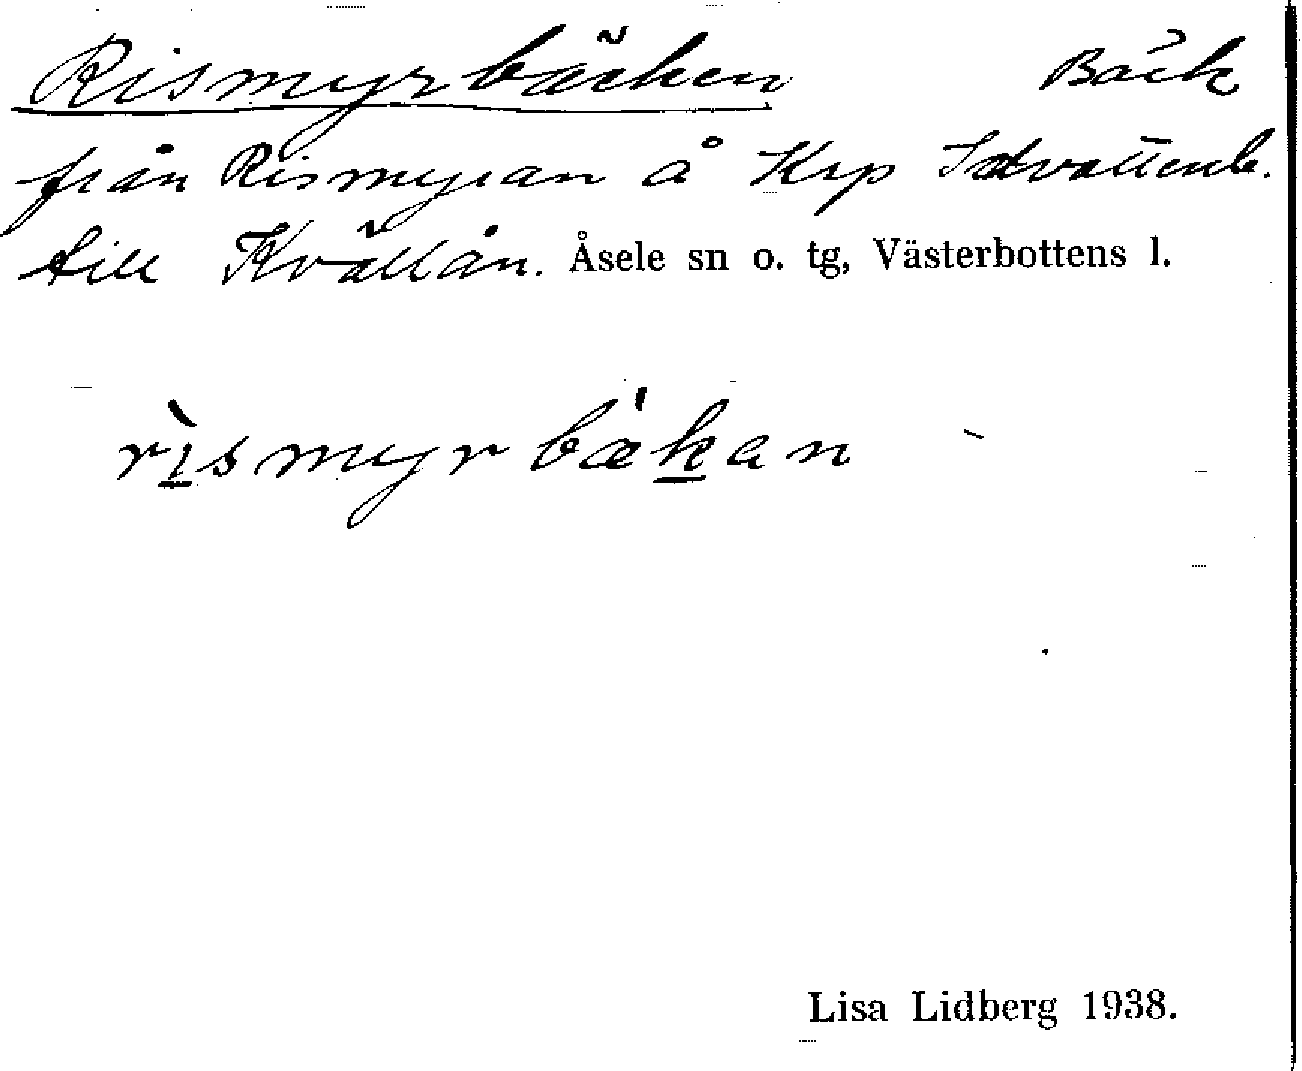 Rismyrbäcken Bäck
från Rismyran å Krp
till Kvällån. Åsele sn o. tg, Västerbottens l.
rı̀smyrbækan
Lisa Lidberg 1938.